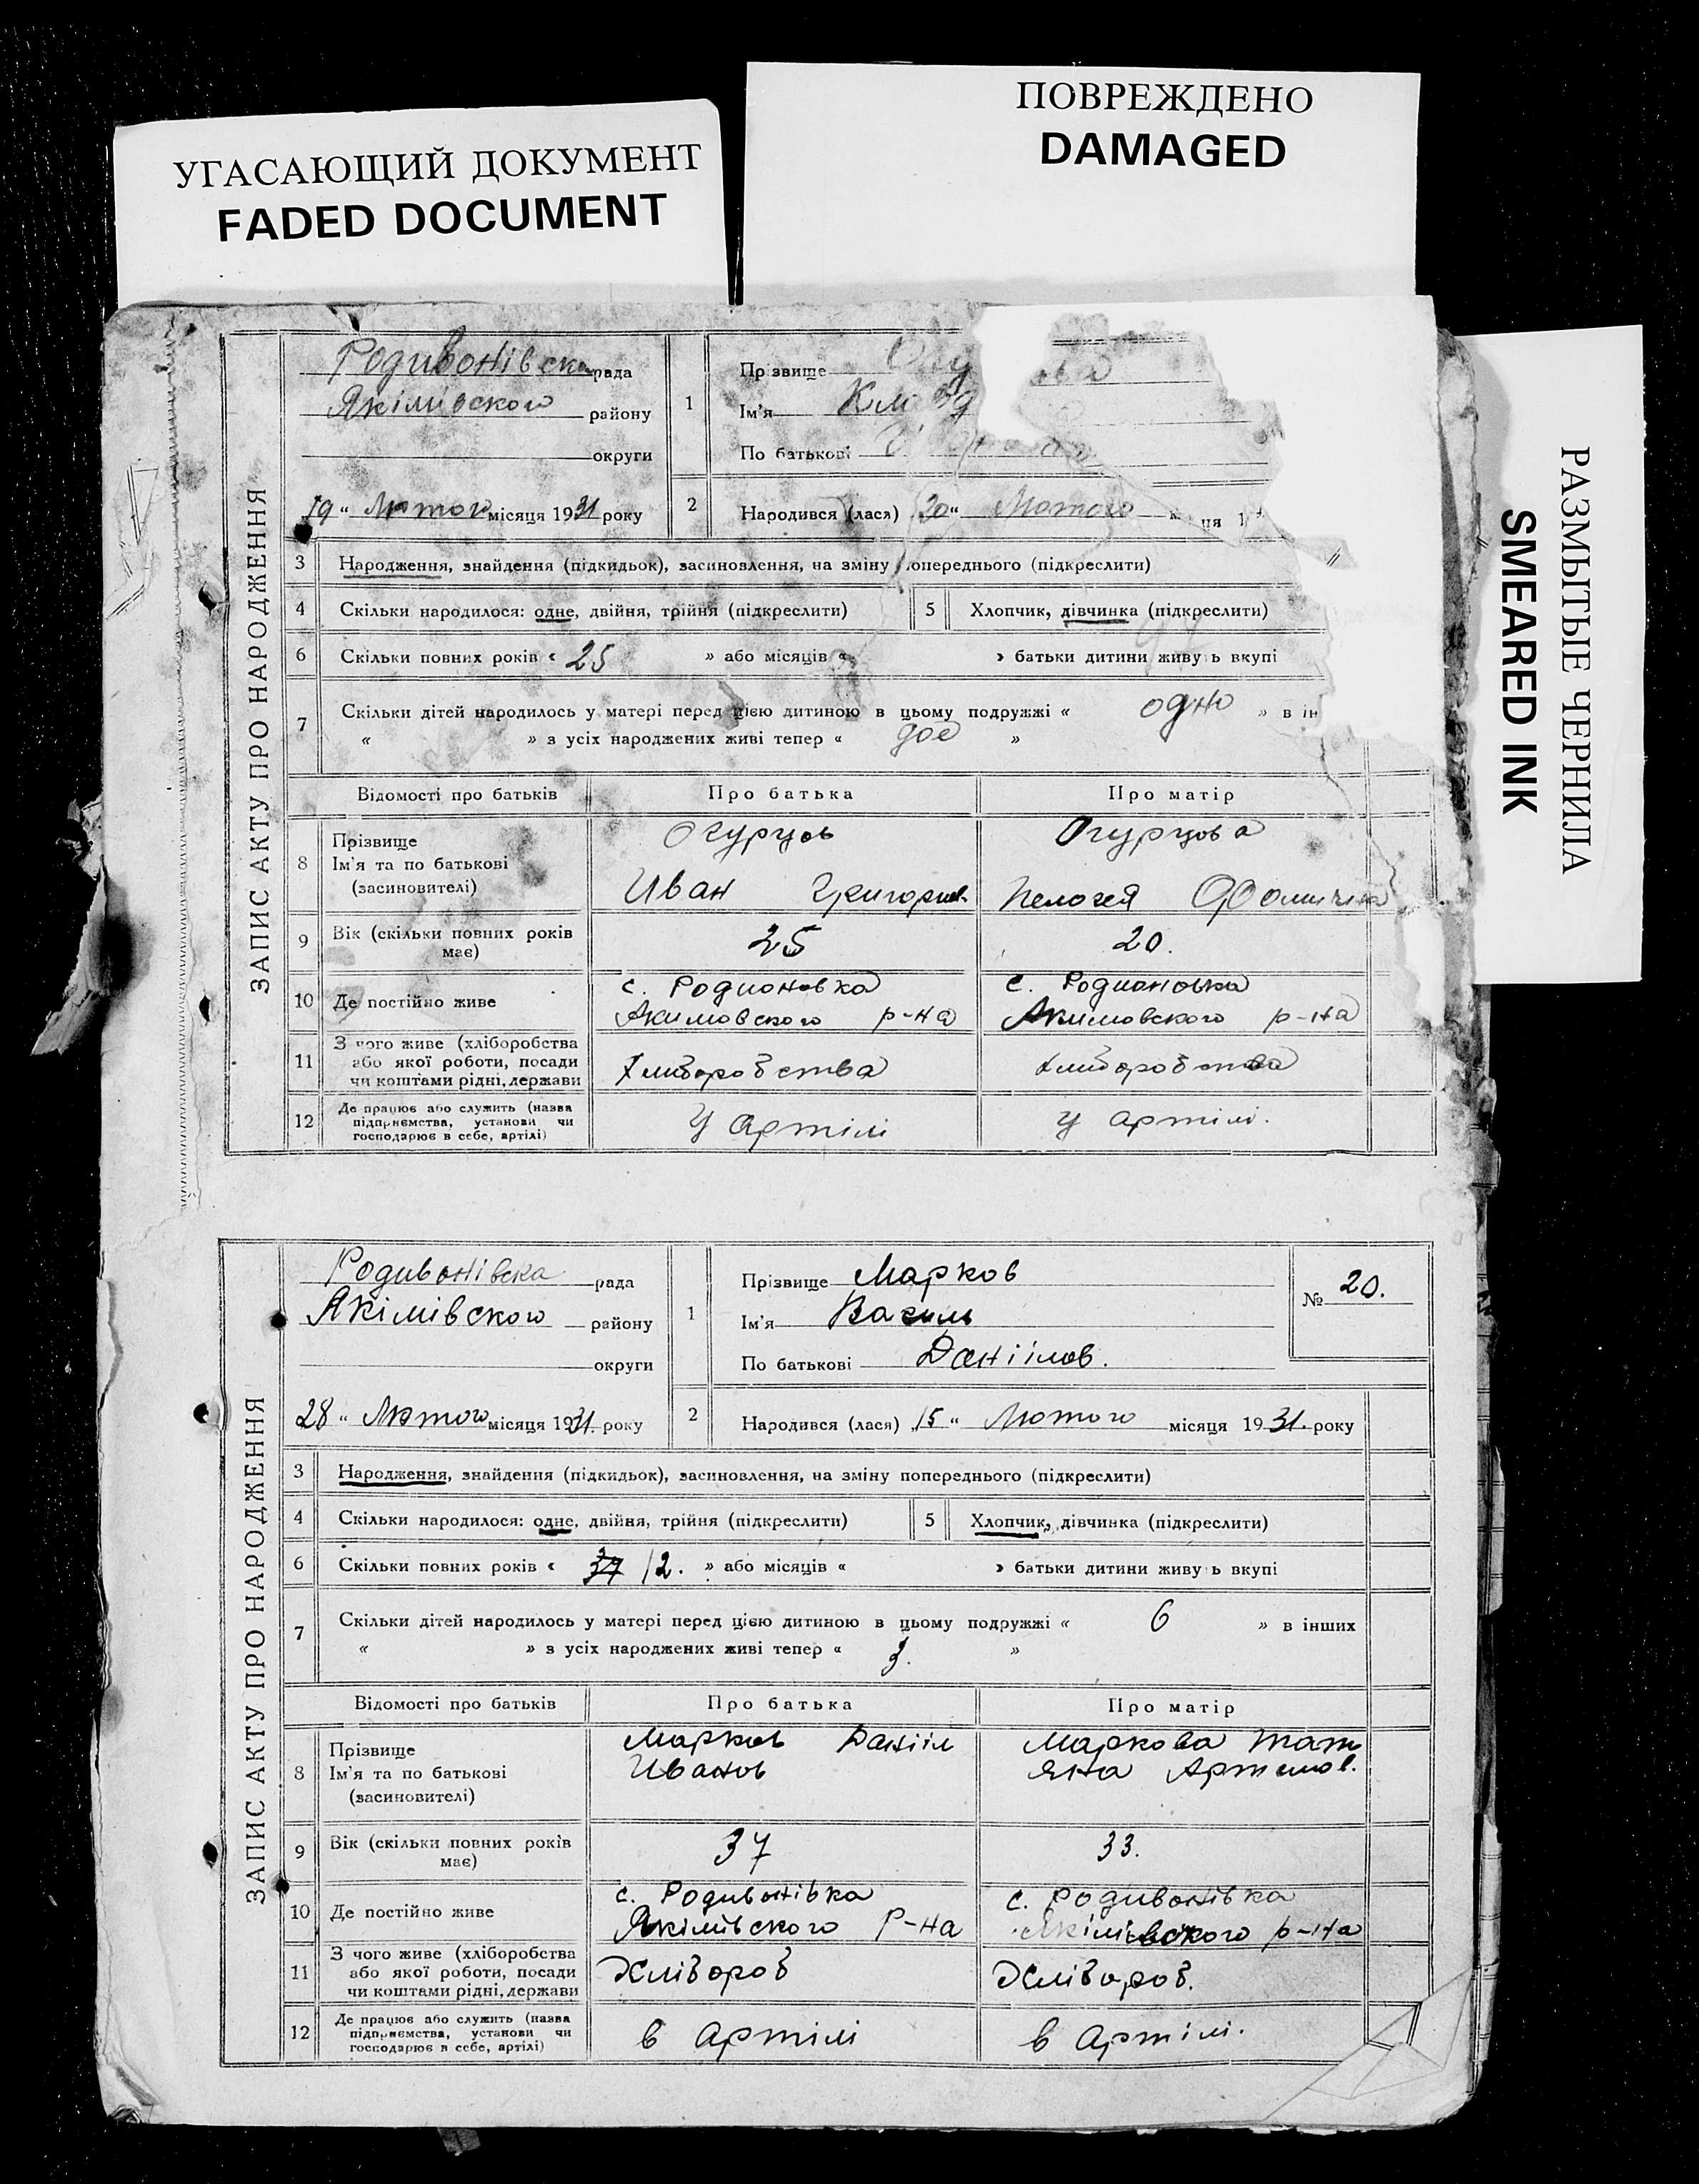 УГАСАЮЩИЙ ДОКУМЕНТ
FADED DOCUMENT
ПОВРЕЖДЕНО
DAMAGED
РАЗМЫТЫЕ ЧЕРНИЛА
SMEARED INK
ЗАПИС АКТУ ПРО НАРОДЖЕННЯ
Родивонівска рада
Якімівского району
округи
19 " Лютого місяця 1931 року
1 Прізвище
Ім'я
По батькові
2 Народився (лася) 20 " Лютого
3 Народження, знайдення (підкидьок), засиновлення, на зміну попереднього (підкреслити)
4 Скільки народилося: одне, двійня, трійня (підкреслити) 5 Хлопчик, дівчинка (підкреслити)
6 Скільки повних років « 25 » або місяців « » батьки дитини живуть вкупі
7 Скільки дітей народилось у матері перед цією дитиною в цьому подружжі « одно » в ін
« » з усіх народжених живі тепер « »
Відомості про батьків Про батька Про матір
8 Прізвище Огурцов Огурцова
Ім'я та по батькові
(засиновителі) Иван Григориев. Пелогея
9 Вік (скільки повних років має) 25 20.
10 Де постійно живе с. Родионовка с. Родионовка
Акимовского р-на Акимовского р-на
11 З чого живе (хліборобства
або якої роботи, посади Хлиборобства хлиборобства
чи коштами рідні, держави
12 Де працює або служить (назва
підприємства, установи чи У артілі у артілі.
господарює в себе, артілі)
ЗАПИС АКТУ ПРО НАРОДЖЕННЯ
Родивонівска рада
Якімівского району
округи
28 " Лютого місяця 1931. року
1 Прізвище Марков
Ім'я Василь
По батькові Даніілов.
№ 20.
2 Народився (лася) 15 " Лютого місяця 1931. року
3 Народження, знайдення (підкидьок), засиновлення, на зміну попереднього (підкреслити)
4 Скільки народилося: одне, двійня, трійня (підкреслити) 5 Хлопчик, дівчинка (підкреслити)
6 Скільки повних років « 37 12. » або місяців « » батьки дитини живуть вкупі
7 Скільки дітей народилось у матері перед цією дитиною в цьому подружжі « 6 » в інших
« » з усіх народжених живі тепер « 3. »
Відомості про батьків Про батька Про матір
8 Прізвище Марков Данііл Маркова Тать
Ім'я та по батькові Иванов яна Артемов.
(засиновителі)
9 Вік (скільки повних років має) 37 33.
10 Де постійно живе с. Родивонівка с. Родивонівка
Якімівского Р-на Якімівского р-на
11 З чого живе (хліборобства
або якої роботи, посади Хлібороб Хлібороб.
чи коштами рідні, держави
12 Де працює або служить (назва
підприємства, установи чи в артілі в артілі.
господарює в себе, артілі)